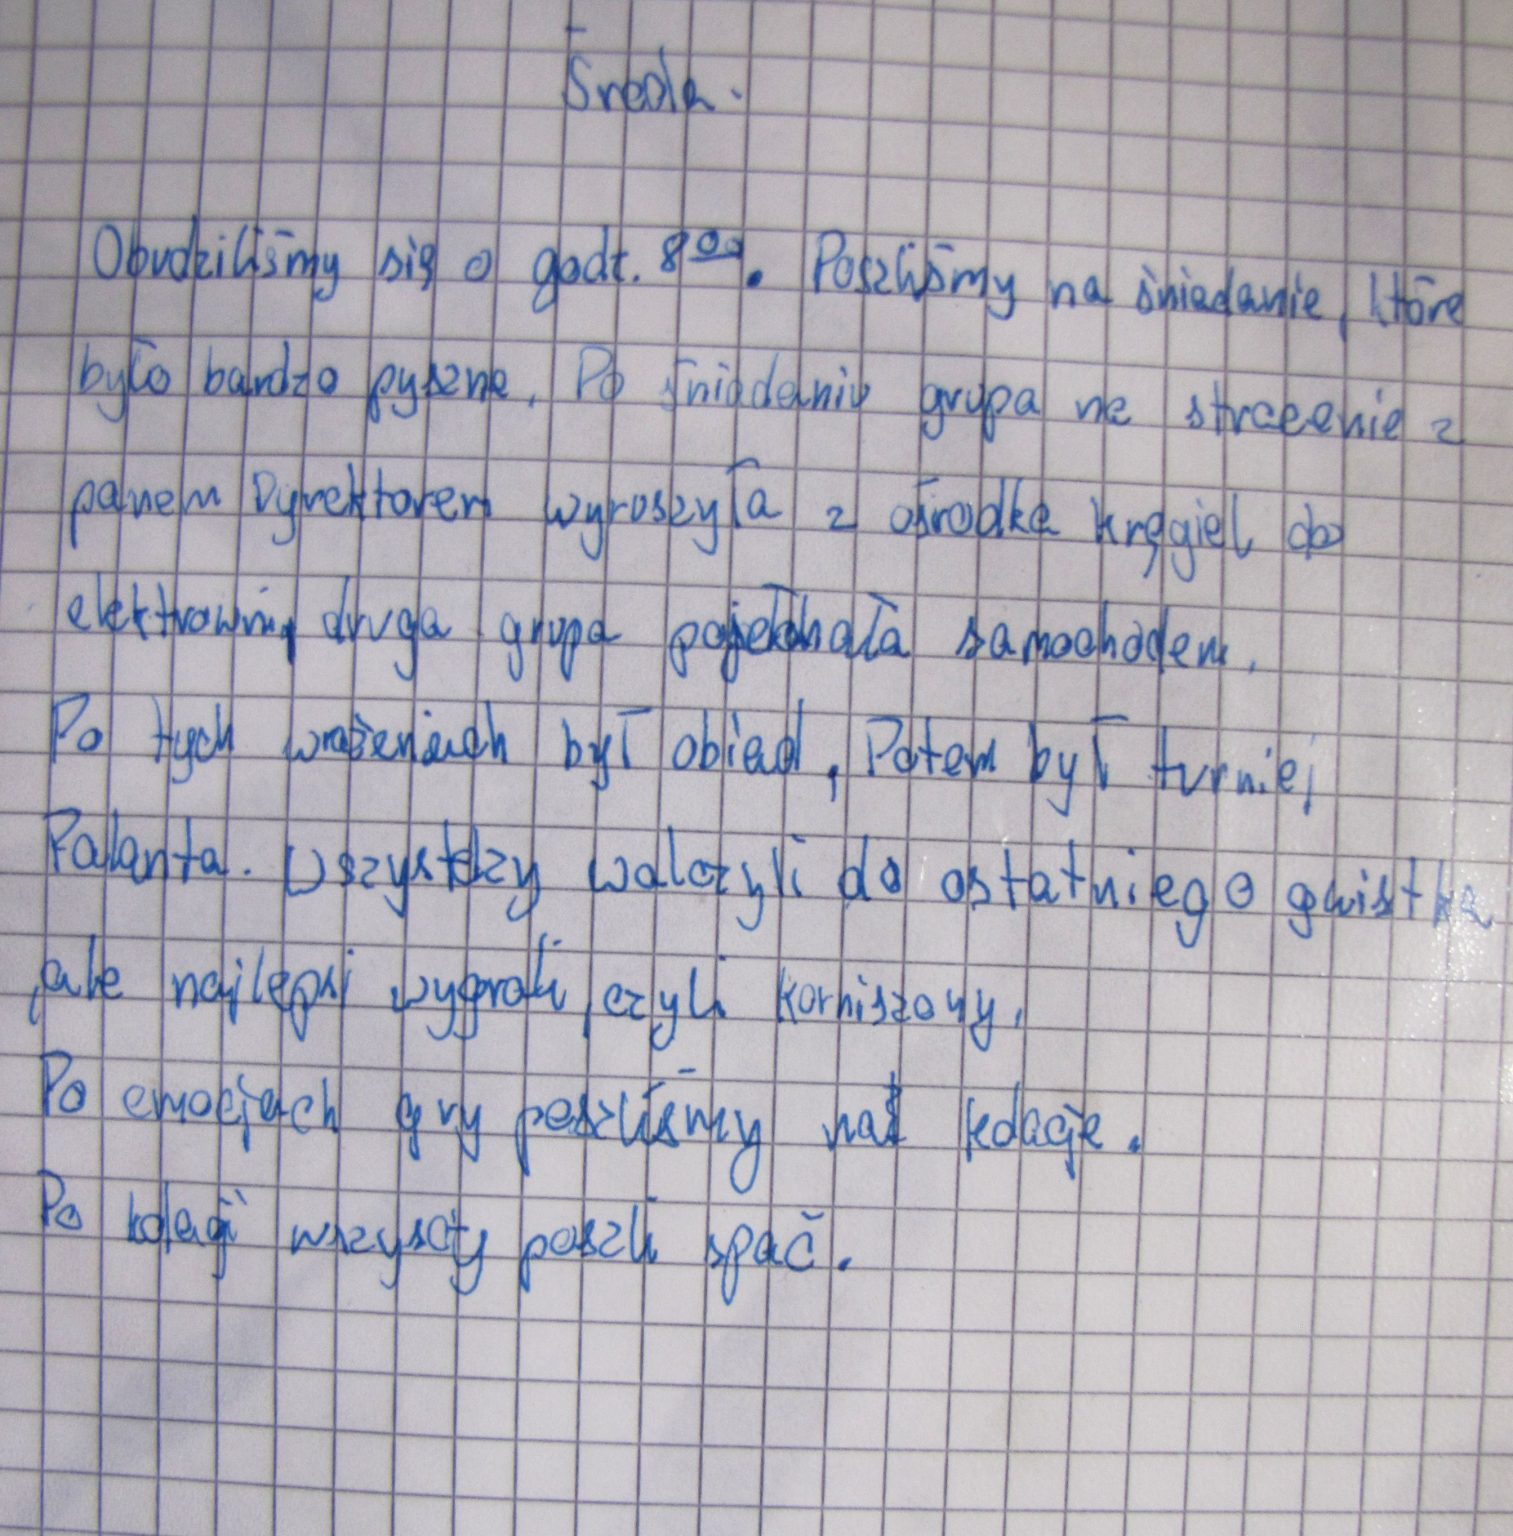 Środa.
Obudziliśmy się o godz. 8⁰⁰. Poszliśmy na śniadanie, które
było bardzo pyszne. Po śniadaniu grupa na stracenie z
panem Dyrektorem wyroszyła z ośrodka kręgiel do
elektrowni, druga grupa pojechała samochodem.
Po tych wrażeniach był obiad, Potem był turniej
Palanta. Wszystkzy walczyli do ostatniego gwistka
,ale najlepsi wygrali, czyli Korniszony.
Po emocjach gry poszliśmy na kolacje.
Po kolacji wszyscy poszli spać.